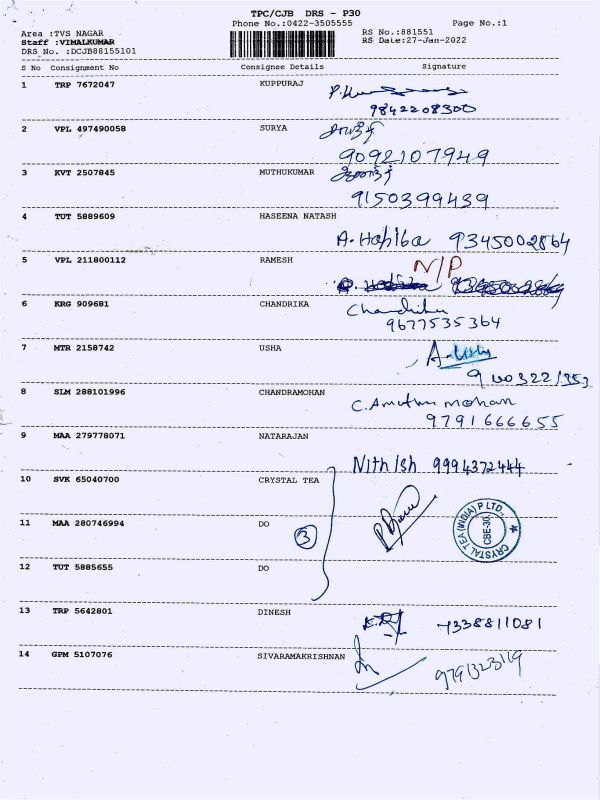 TPC/CJB DRS - P30
Phone No.:0422-3505555 Page No.:1
Area :TVS NAGAR RS No.:881551
Staff :VIMALKUMAR RS Date:27-Jan-2022
DRS No. :DCJB88155101
S No Consignment No Consignee Details Signature
1 TRP 7672047 KUPPURAJ
9842208300
2 VPL 497490058 SURYA
9092107949
3 KVT 2507845 MUTHUKUMAR
9150399439
4 TUT 5889609 HASEENA NATASH
A. Habiba 9345002864
5 VPL 211800112 RAMESH N/P
6 KRG 909681 CHANDRIKA
9677535364
7 MTR 2158742 USHA
8 SLM 288101996 CHANDRAMOHAN
C. Amuthu mohan
9791666655
9 MAA 279778071 NATARAJAN
Nithish 9994372444
10 SVK 65040700 CRYSTAL TEA
CRYSTAL TEA (INDIA) P LTD., CBE-30.
11 MAA 280746994 DO 3
12 TUT 5885655 DO
13 TRP 5642801 DINESH 7338811081
14 GPM 5107076 SIVARAMAKRISHNAN